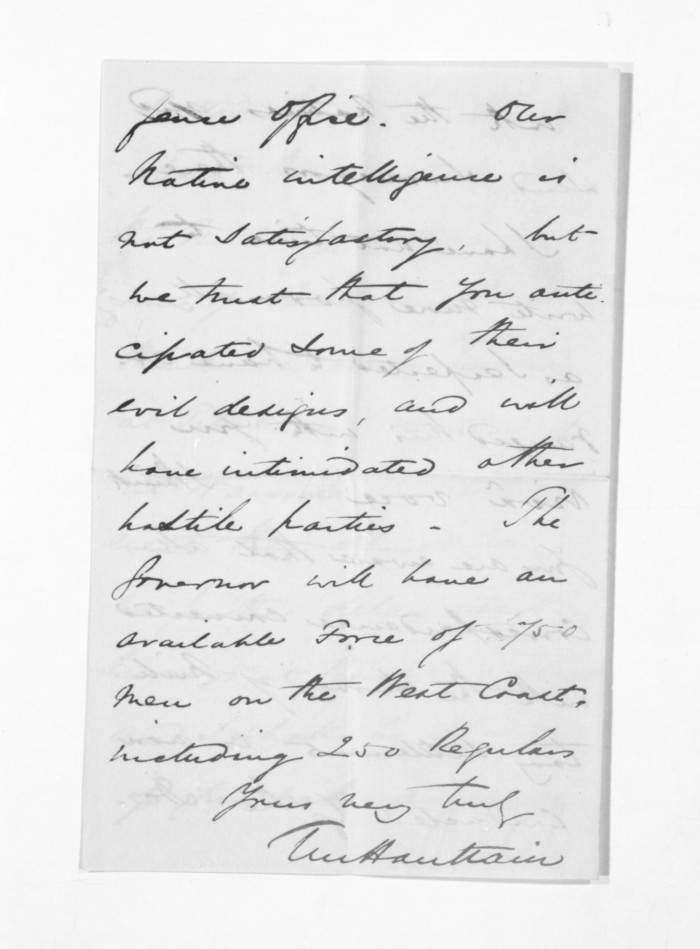 fence Office. Our
Native intelligence is
not satisfactory, but
we trust that you anti
cipated some of their
evil designs, and will
have intimidated other
hostile parties - The
Governor will have an
available Force of 750
men on the West Coast,
including 250 Regulars
Yours very truly
TM Haultain